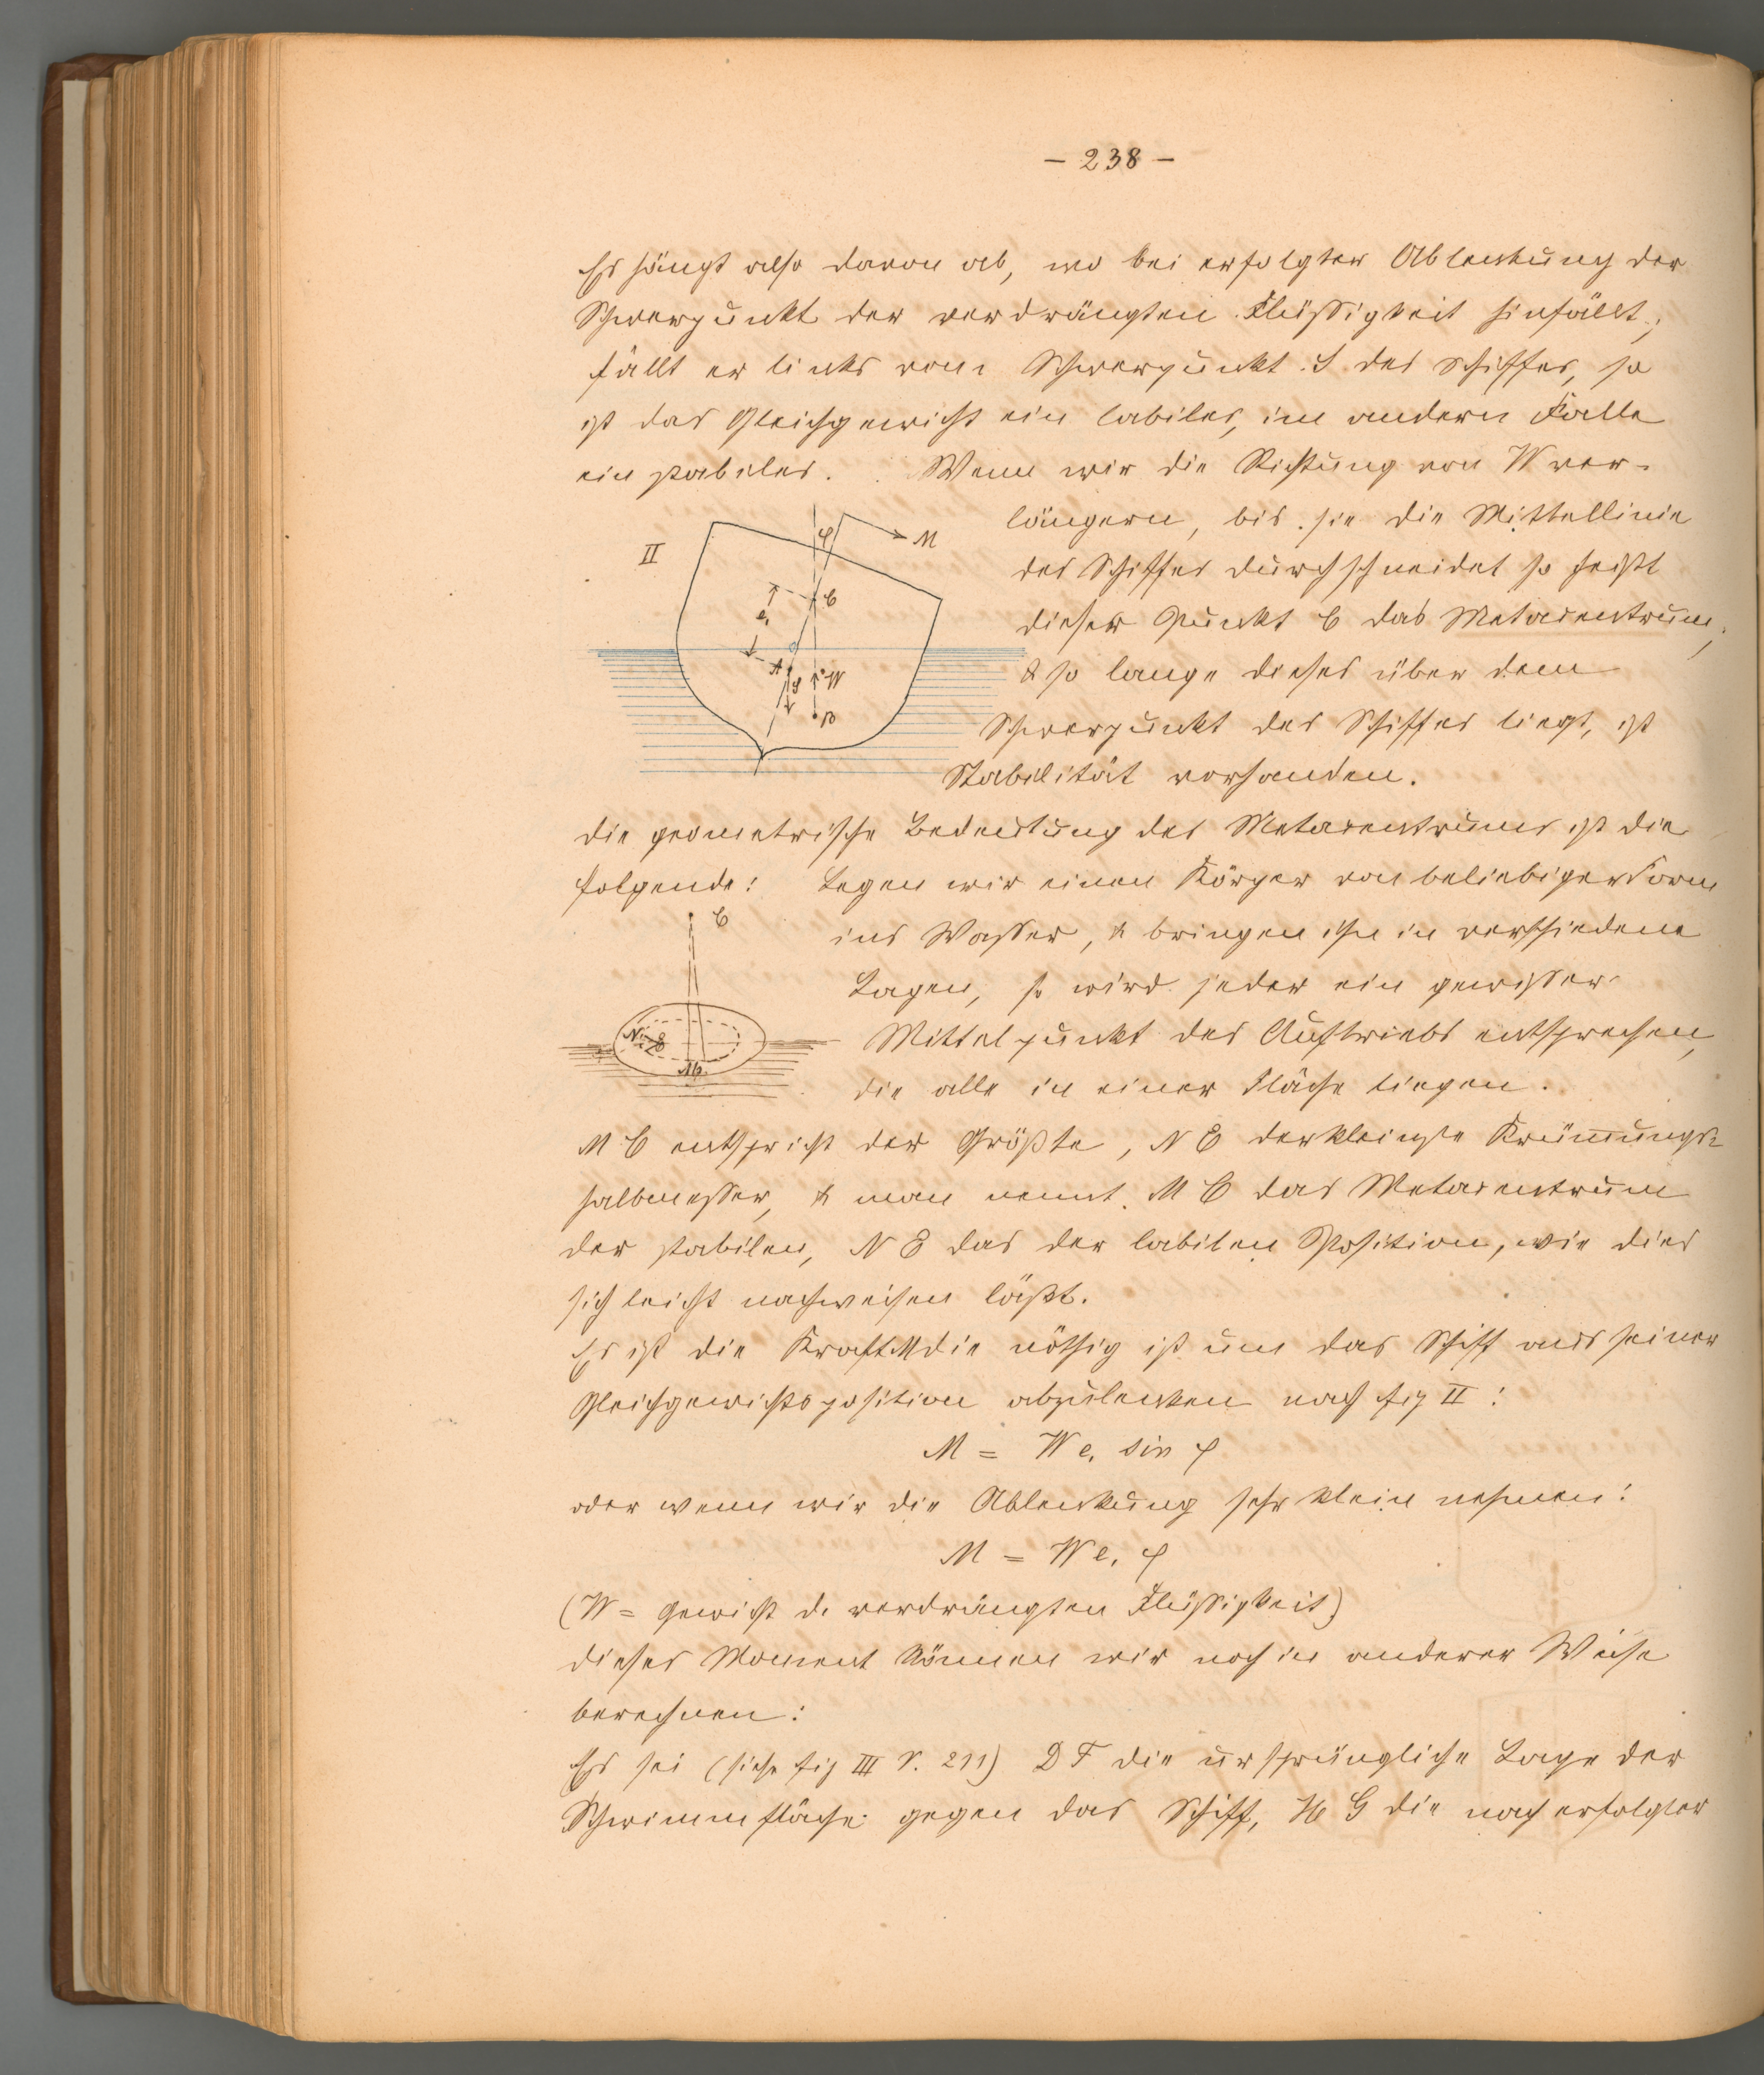 – 238 –
Es hängt also davon ab, wo bei erfolgter Ablenkung der
Schwerpunkt der verdrängten Flüßigkeit hinfällt;
fällt er links vom Schwerpunkt S des Schiffes, so
ist das Gleichgewicht ein labiles, im andern Falle
ein stabiles. Wenn wir die Richtung von W ver-
längern, bis sie die Mittellinie
des Schiffes durchschneidet so heißt
dieser Punkt C das Metacentrum,
& so lange dieses über dem
Schwerpunkt des Schiffes liegt, ist
Stabilität vorhanden.
II
φ
M
C
e,
A
S
W
B
die geometrische Bedeutung des Metacentrums ist die
folgende: Legen wir einen Körper von beliebiger Form
ins Wasser, & bringen ihn in verschiedene
Lagen, so wird jeder ein gewisser
Mittelpunkt des Auftriebs entsprechen,
die alle in einer Fläche liegen.
C
N
E
M
M C entspricht der Größte, N E der kleinste Krümungs-
halbmesser, & man nennt M C das Metacentrum
der stabilen, N E das der labilen Position, wie dies
sich leicht nachweisen läßt.
Es ist die Kraft M die nöthig ist um das Schiff aus seiner
Gleichgewichtsposition abzulenken nach fig II:
M = W e, sin φ
oder wenn wir die Ablenkung sehr klein nehmen:
M = W e, φ
(W = Gewicht d. verdrängten Flüßigkeit)
dieses Moment können wir noch in anderer Weise
berechnen:
Es sei (siehe fig III S. 211) D F die ursprüngliche Lage der
Schwimmfläche gegen das Schiff, H G die nach erfolgter